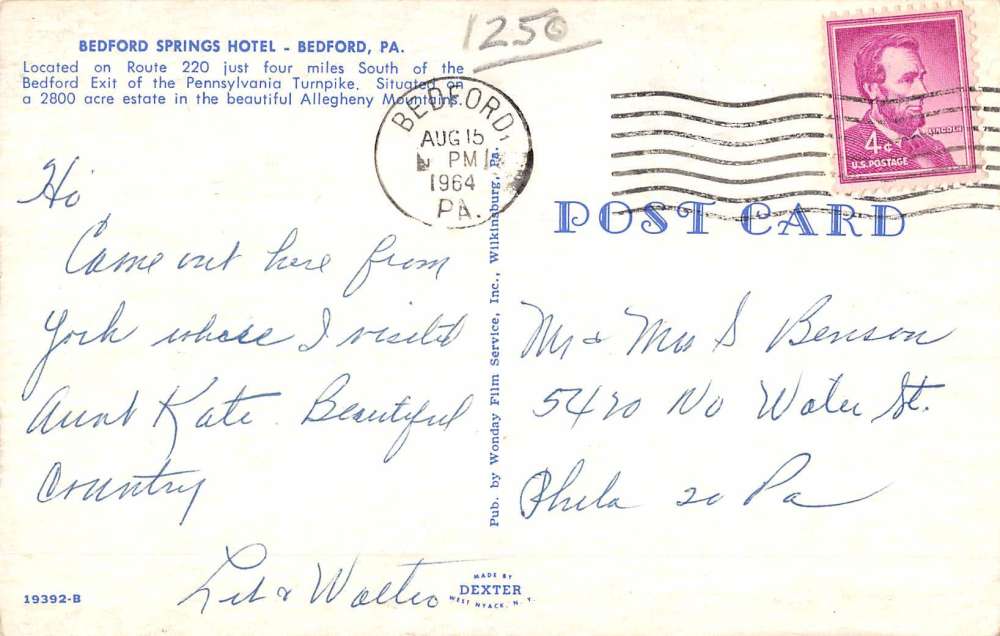 1250
BEDFORD SPRINGS HOTEL - BEDFORD, PA.
Located on Route 220 just four miles South of the
Bedford Exit of the Pennsylvania Turnpike. Situated on
a 2800 acre estate in the beautiful Allegheny Mountains.
BEDFORD,
AUG 15
PM
1964
PA.
LINCOLN
4¢
U.S. POSTAGE
POST CARD
Hi
Came out here from
York where I visited
Aunt Kate. Beautiful
Country
& Walter
Pub. by Wonday Film Service, Inc., Wilkinsburg, Pa.
Mr & Mrs S Benson
5420 No Water St.
Phila 20 Pa
19392-B
MADE BY
DEXTER
WEST NYACK, N. Y.